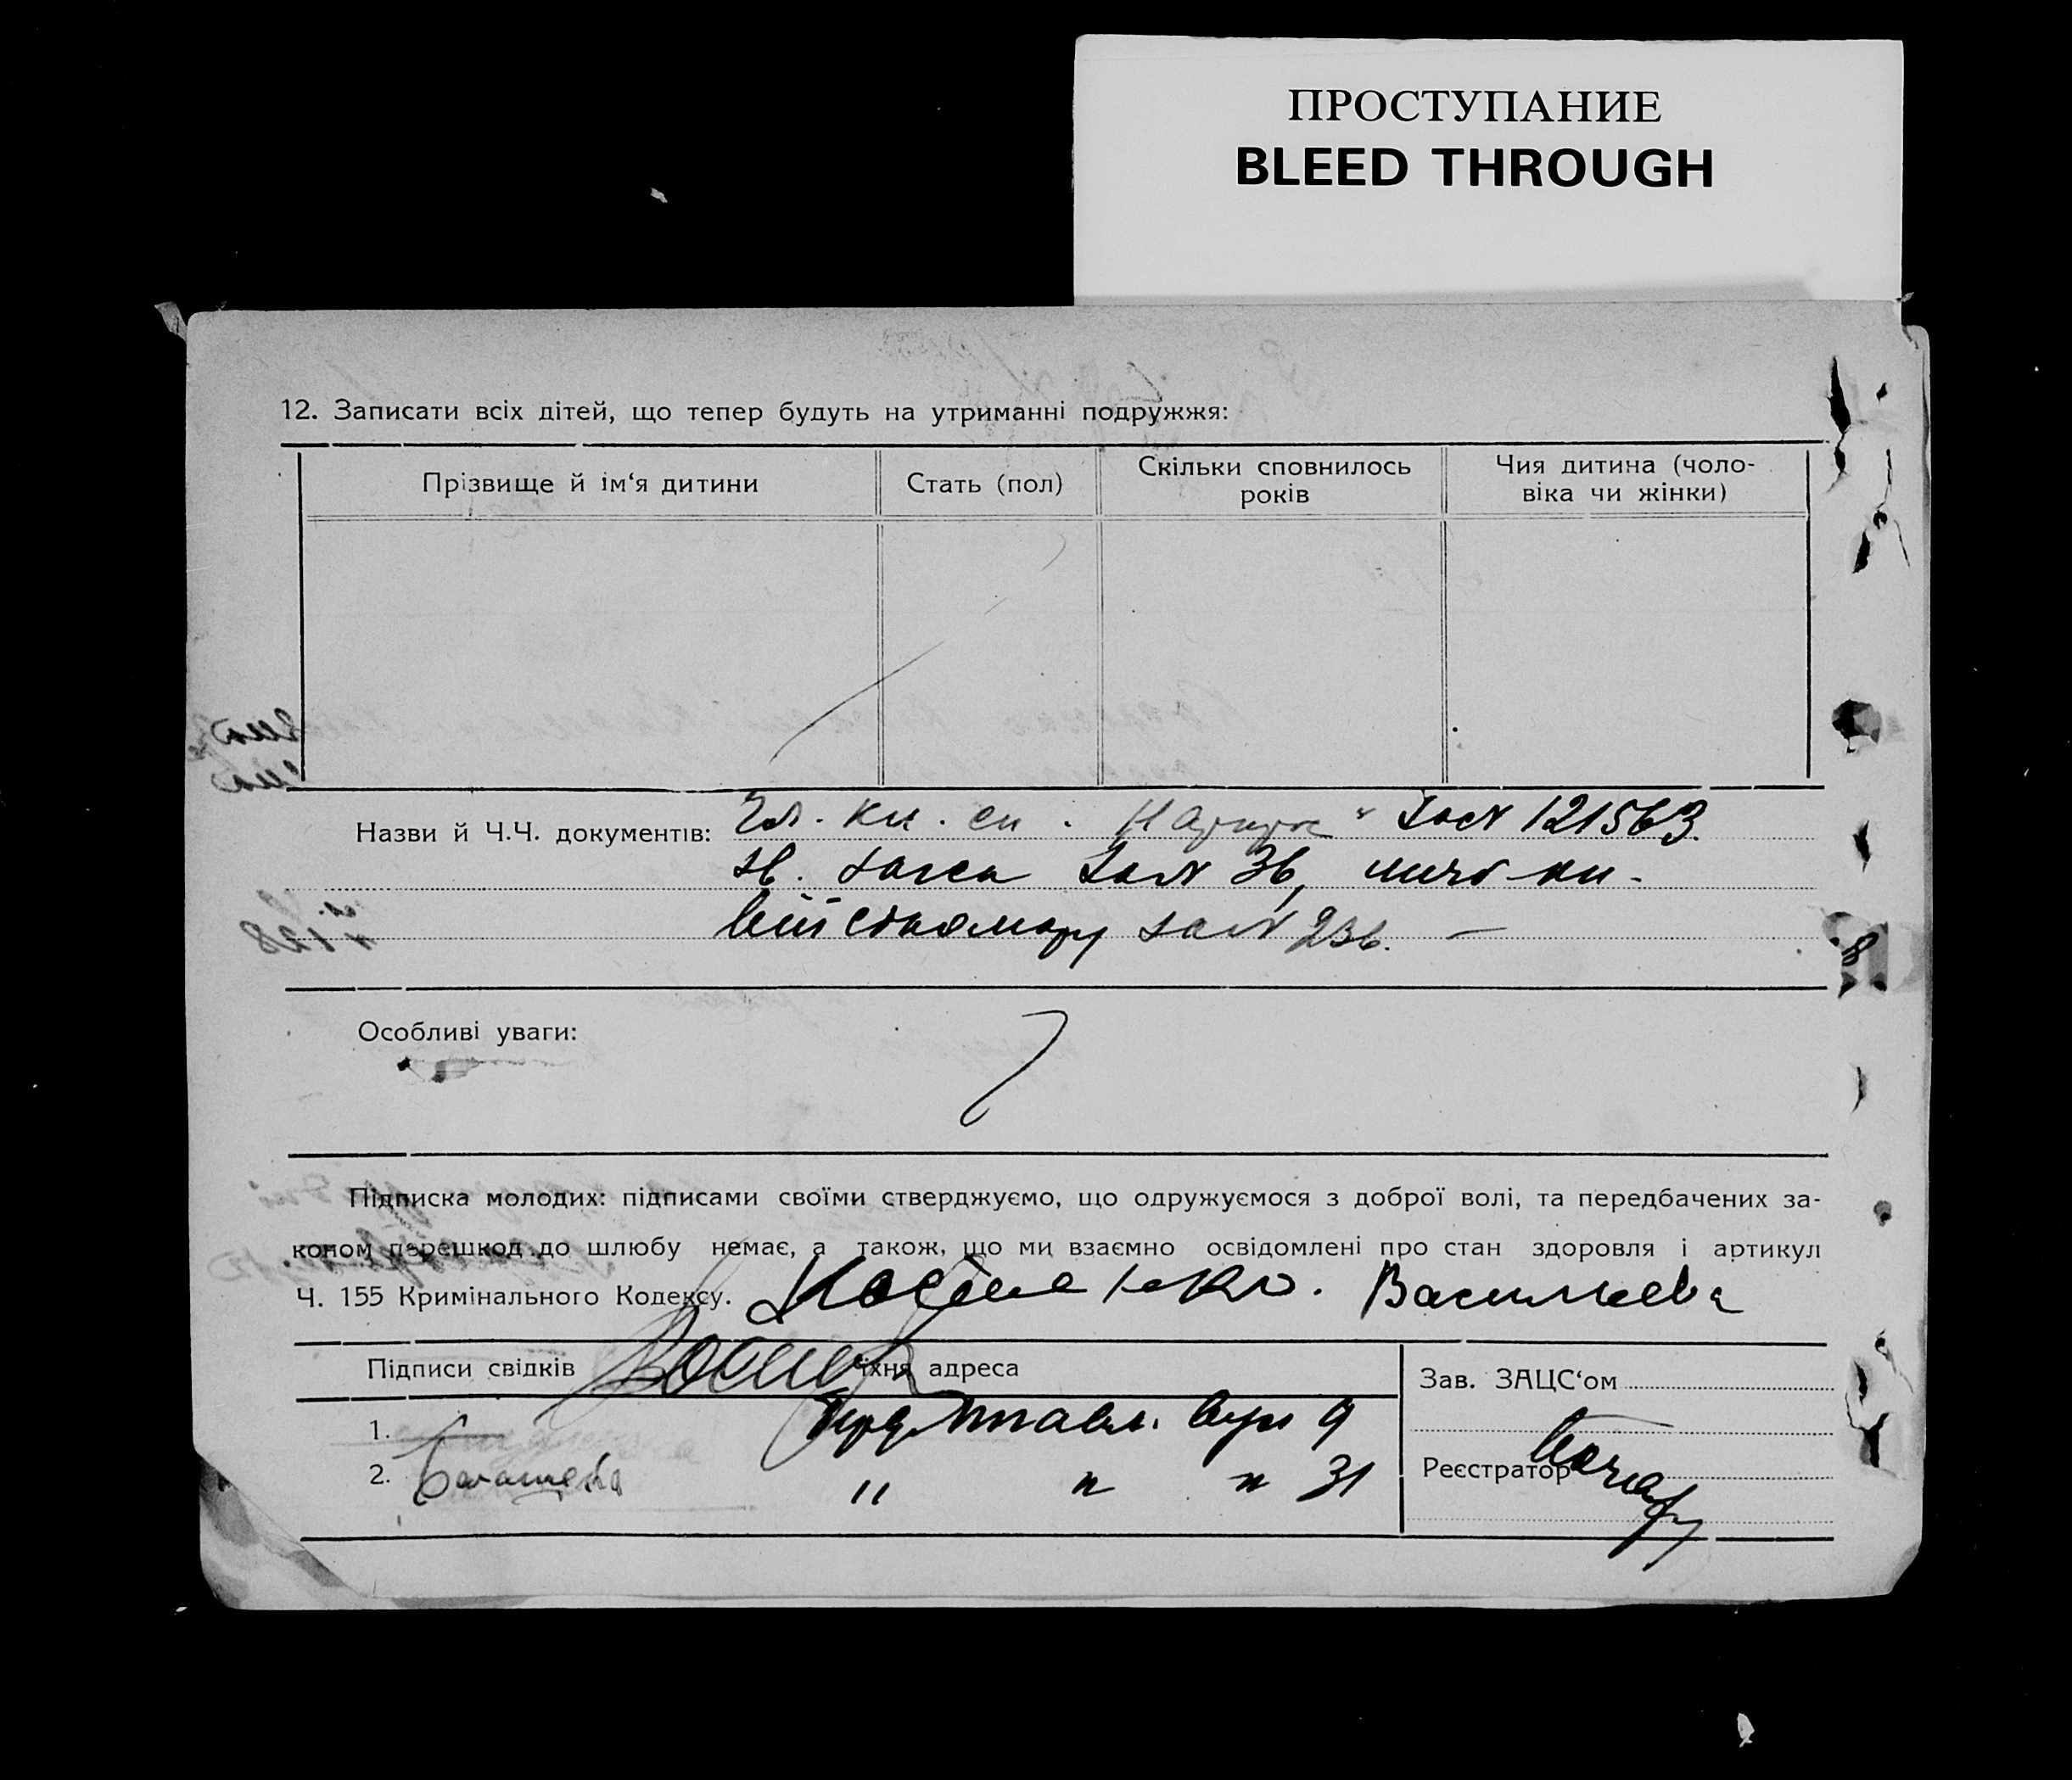 ПРОСТУПАНИЕ
BLEED THROUGH
12. Записати всіх дітей, що тепер будуть на утриманні подружжя:
Прізвище й ім‘я дитини
Стать (пол)
Скільки сповнилось
років
Чия дитина (чоло-
віка чи жінки)
Назви й Ч.Ч. документів: Чл. кн. сп. № 121563
за № 36,
за № 236. —
8
Особливі уваги:
Підписка молодих: підписами своїми стверджуємо, що одружуємося з доброї волі, та передбачених за-
коном перешкод до шлюбу немає, а також, що ми взаємно освідомлені про стан здоровля і артикул
Ч. 155 Кримінального Кодексу. Васильева
Підписи свідків
їхня адреса
Зав. ЗАЦС‘ом
1. вул 9
2. " " " 31
Реєстратор